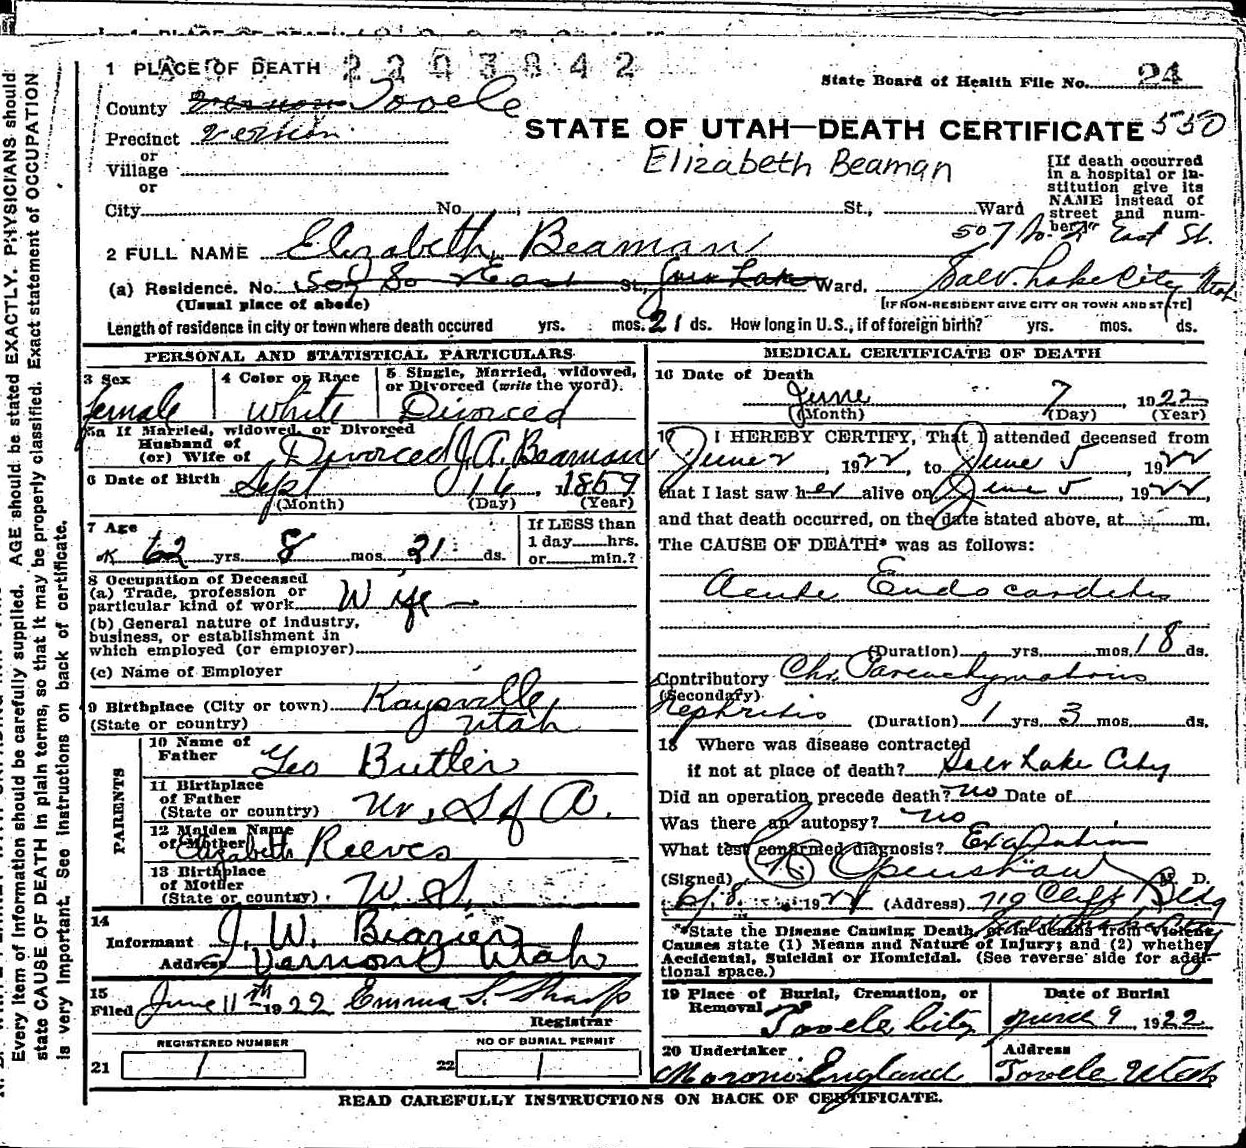 1 PLACE OF DEATH 2203842
State Board of Health File No. 24
County Vernon Tooele
Precinct Vernon
STATE OF UTAH—DEATH CERTIFICATE 550
or
Village
Elizabeth Beaman
or
[If death occurred in a hospital or in-
stitution give its
NAME instead of
street and num-
ber.]
City No. St., Ward
2 FULL NAME Elizabeth Beaman
507 So. 2nd East St.
(a) Residence. No. 507 So 2 East St., Salt Lake Ward. Salt Lake City Utah
(Usual place of abode) [IF NON-RESIDENT GIVE CITY OR TOWN AND STATE]
Length of residence in city or town where death occured yrs. mos. 21 ds. How long in U.S., if of foreign birth? yrs. mos. ds.
PERSONAL AND STATISTICAL PARTICULARS
3 Sex
female
4 Color or Race
White
5 Single, Married, widowed,
or Divorced (write the word).
Divorced
5a If Married, widowed, or Divorced
Husband of
(or) Wife of Divorced J. A. Beaman
6 Date of Birth Sept 16, 1859
(Month) (Day) (Year)
7 Age
OK 62 yrs. 8 mos. 21 ds.
If LESS than
1 day hrs.
or min.?
8 Occupation of Deceased
(a) Trade, profession or
particular kind of work Wife
(b) General nature of industry,
business, or establishment in
which employed (or employer)
(c) Name of Employer
9 Birthplace (City or town) Kaysville
(State or country) Utah
PARENTS
10 Name of
Father Geo Butler
11 Birthplace
of Father
(State or country) U. S. of A.
12 Maiden Name
of Mother Elizabeth Reeves
13 Birthplace
of Mother
(State or country) U. S.
14
Informant J. W. Brazier
Address Vernon Utah
15
Filed June 11th 1922 Emma S. Sharp
Registrar
REGISTERED NUMBER
21 1
NO OF BURIAL PERMIT
22 1
MEDICAL CERTIFICATE OF DEATH
16 Date of Death
June 7, 1922
(Month) (Day) (Year)
17 I HEREBY CERTIFY, That I attended deceased from
June 2, 1922, to June 5, 1922
that I last saw her alive on June 5, 1922,
and that death occurred, on the date stated above, at m.
The CAUSE OF DEATH* was as follows:
Acute Endocarditis
(Duration) yrs. mos. 18 ds.
Contributory Chr. Parenchymatous
(Secondary)
Nephritis (Duration) 1 yrs. 3 mos. ds.
18 Where was disease contracted
if not at place of death? Salt Lake City
Did an operation precede death? no Date of
Was there an autopsy? no
What test confirmed diagnosis?
(Signed) Openshaw M. D.
6/8, 1922 (Address) 719 Clift Bldg
Salt Lake City
*State the Disease Causing Death, or in deaths from Violent
Causes state (1) Means and Nature of Injury; and (2) whether
Accidental, Suicidal or Homicidal. (See reverse side for addi-
tional space.)
19 Place of Burial, Cremation, or
Removal Tooele City
Date of Burial
June 9, 1922
20 Undertaker
Moroni England
Address
Tooele Utah
READ CAREFULLY INSTRUCTIONS ON BACK OF CERTIFICATE.
Every item of information should be carefully supplied. AGE should be stated EXACTLY. PHYSICIANS should
state CAUSE OF DEATH in plain terms, so that it may be properly classified. Exact statement of OCCUPATION
is very important. See instructions on back of certificate.